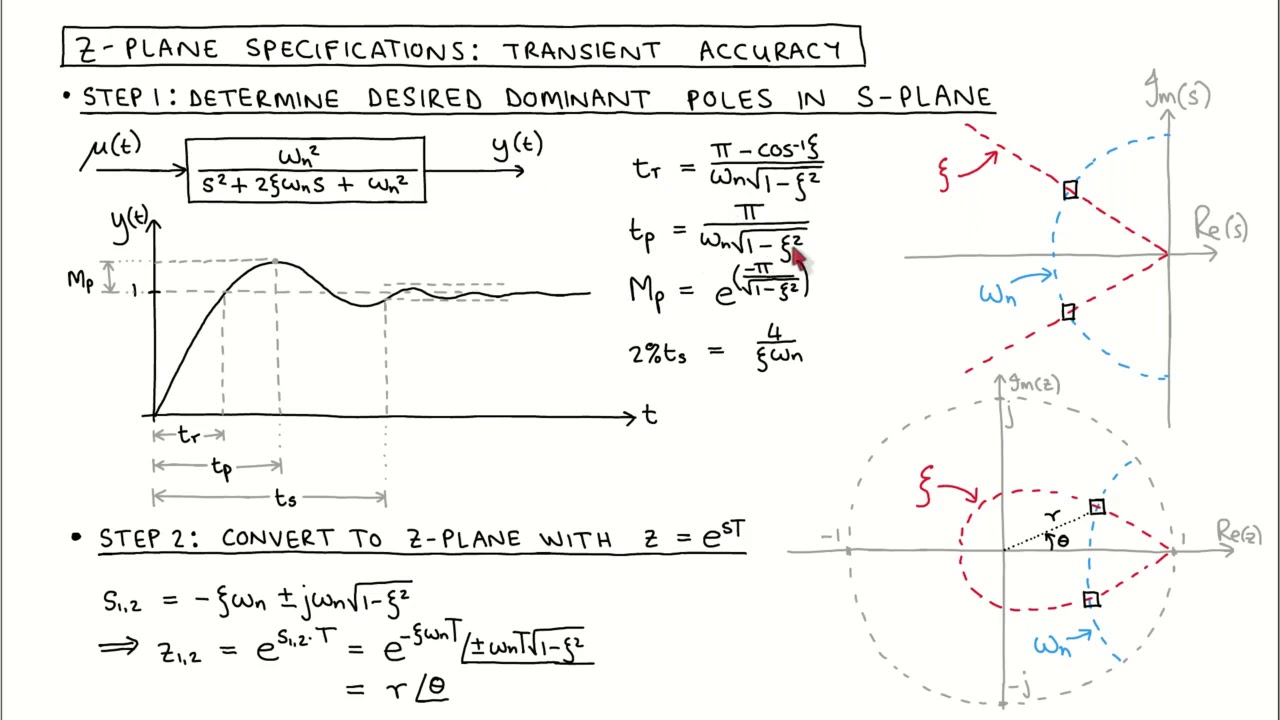 Z-PLANE SPECIFICATIONS: TRANSIENT ACCURACY
• STEP 1: DETERMINE DESIRED DOMINANT POLES IN S-PLANE
μ(t)
ωn²
s² + 2ξωns + ωn²
y(t)
y(t)
Mp
1
t
tr
tp
ts
tr = π - cos⁻¹ξ / ωn√1-ξ²
tp = π / ωn√1-ξ²
Mp = e^(-π/√1-ξ²)
2%ts = 4 / ξωn
Im(s)
ξ
Re(s)
ωn
• STEP 2: CONVERT TO Z-PLANE WITH z = e^sT
s1,2 = -ξωn ± jωn√1-ξ²
⟹ z1,2 = e^s1,2·T = e^-ξωnT ∠±ωnT√1-ξ²
= r∠θ
Im(z)
j
ξ
r
θ
-1
1
Re(z)
ωn
-j